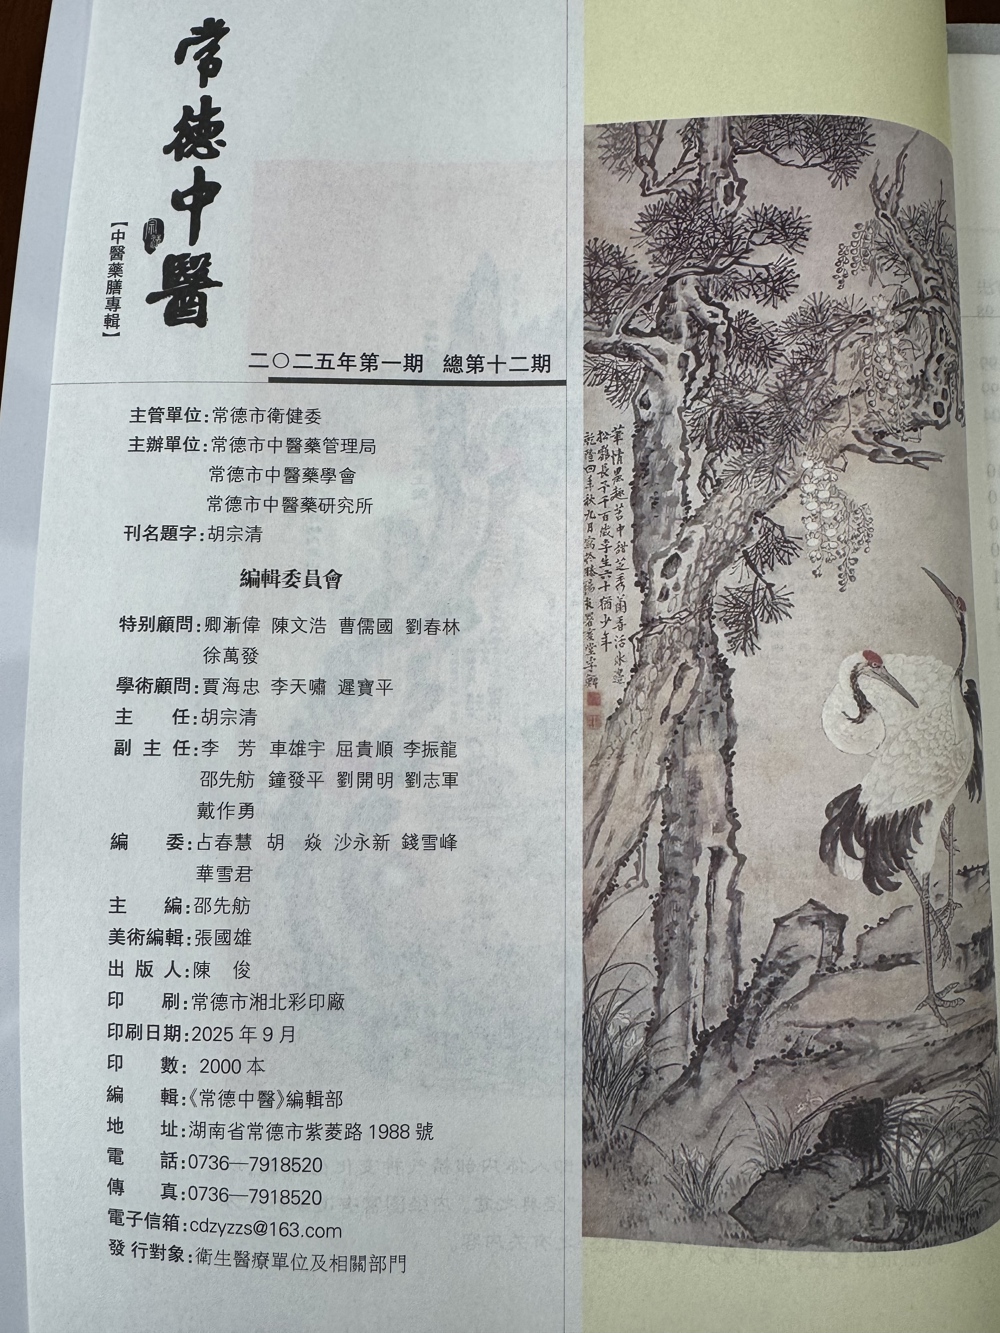 常德中醫
【中醫藥膳專輯】
二〇二五年第一期 總第十二期
主管單位:常德市衛健委
主辦單位:常德市中醫藥管理局
常德市中醫藥學會
常德市中醫藥研究所
刊名題字:胡宗清
編輯委員會
特别顧問:卿漸偉 陳文浩 曹儒國 劉春林
徐萬發
學術顧問:賈海忠 李天嘯 遲寶平
主 任:胡宗清
副 主 任:李 芳 車雄宇 屈貴順 李振龍
邵先舫 鐘發平 劉開明 劉志軍
戴作勇
編 委:占春慧 胡 焱 沙永新 錢雪峰
華雪君
主 編:邵先舫
美術編輯:張國雄
出 版 人:陳 俊
印 刷:常德市湘北彩印廠
印刷日期:2025 年 9 月
印 數: 2000 本
編 輯:《常德中醫》編輯部
地 址:湖南省常德市紫菱路 1988 號
電 話:0736—7918520
傳 真:0736—7918520
電子信箱:cdzyzzs@163.com
發 行對象:衛生醫療單位及相關部門
松鶴長年千百歲
乾隆四年秋九月寫於